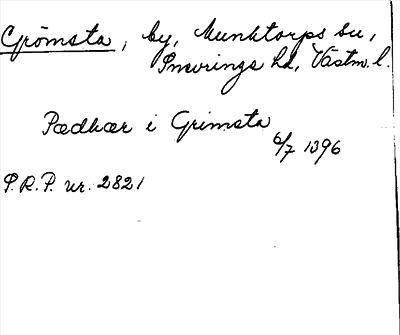 Grömsta, by, Munktorps sn,
Snevringe hd, Västm. l.
Pædhær i Grimsta
6/7 1396
P.R.P. nr. 2821